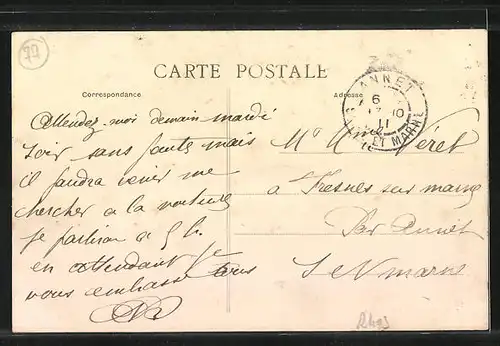 77
CARTE POSTALE
Correspondance
Adresse
ANNET
6
11
ET MARNE
Attendez moi demain mardi
soir sans faute mais
il faudra venir me
chercher a la voiture
je partirai a 5 h.
en attendant je
vous embrasse tous
M. Véret
a Fresnes sur marne
Par Annet
S et marne